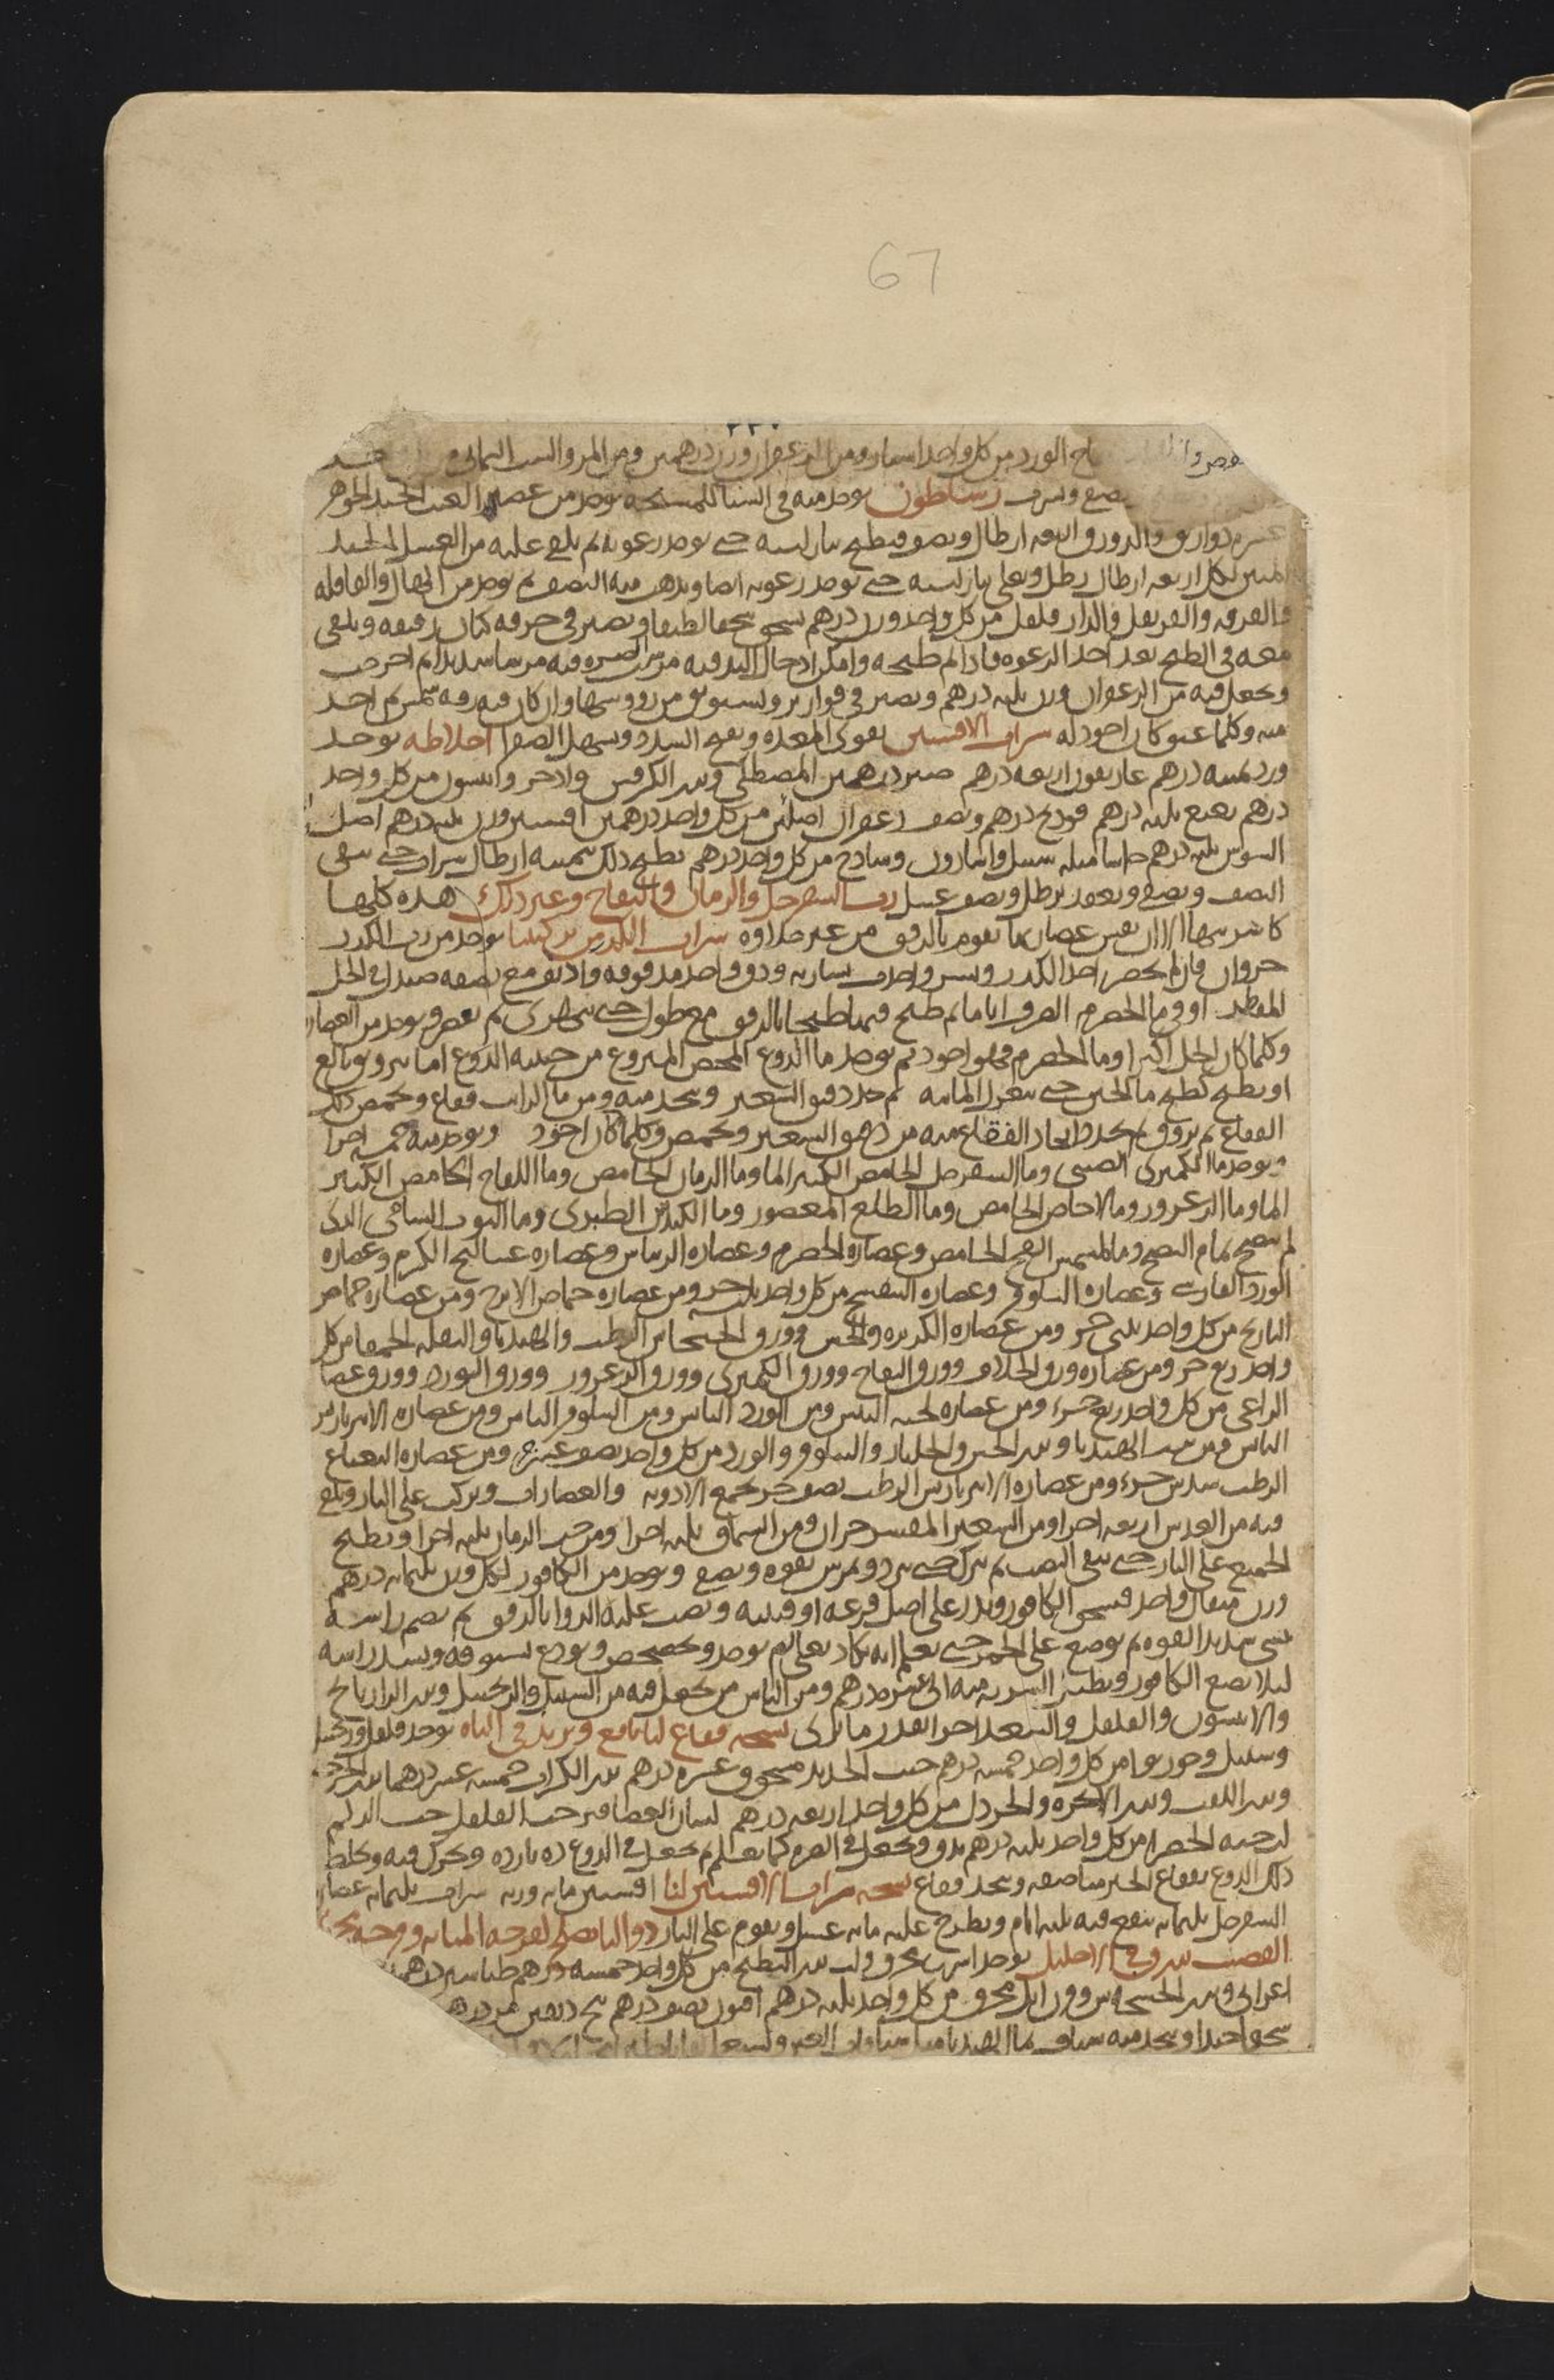 67
٢٢٠
الورد من كل واحد اساتير ومن الزعفران وزن درهمين ومن المر والشب اليماني
رساطون يوخذ منه في الشتا للمسنحه يوخذ من عصير العنب الجيد الجوهر
عشرة دواريق والدورق اربعه ارطال ونصف فيطبخ بنار لينه حتى يوخذ رغوته ثم يلقى عليه من العسل الجيد
لكل اربعه ارطال رطل ويغلى بنار لينه حتى توخذ رغوته ايضا ويذهب منه النصف ثم يوخذ من الهال والقاقله
والقرفه والقرنفل والدار فلفل من كل واحد وزن درهم يسحق سحقا لطيفا ويصير في خرقه كتان رقيقه ويلقى
معه في الطبخ بعد اخذ الرغوه فاذا تم طبخه وامكن ادخال اليد فيه مرس الصره فيه مرسا شديدا ثم اخرجت
ويجعل فيه من الزعفران وزن ثلثه درهم ويصير في قوارير ويستوثق من رووسها وان كان فيه رقه شمس ثم اخذ
منه وكلما عتق كان اجود له شراب الافسنتين يقوى المعده ويفتح السدد ويسهل الصفرا اخلاطه يوخذ
ورد خمسه درهم غاريقون اربعه درهم صبر درهمين المصطكى وبزر الكرفس واذخر وانيسون من كل واحد
درهم نعنع ثلثه درهم فودنج درهم ونصف زعفران من كل واحد درهمين افسنتين وزن ثلثه درهم اصل
السوس ثلثه درهم حاشا مثله سنبل واسارون وساذج من كل واحد درهم يطبخ ذلك بخمسه ارطال شراب حتى يبقى
النصف ويصفى ويعقد برطل ونصف عسل رب السفرجل والرمان والتفاح وغير ذلك هذه كلها
كاشربتها الا ان نفس عصاراتها تقوم بالرفق من غير حلاوه شراب الكدر من تركيبنا يوخذ من رب الكدر
جزوان فان لم يحضر اخذ الكدر ونشر واخذت نشارته ودق واخذ مدقوقه واذيق مع نصفه صندل في الخل
المقطر او في ما الحصرم الصرف اياما ثم طبخ فيهما طبخا بالرفق مع طول حتى يتهرى ثم يعصر ويوخذ من العصاره
وكلما كان الخل اكثر او ما الحصرم فهو اجود ثم يوخذ ما الدوغ المخض المنزوع من جبنه الدوغ اما بترويق بالغ
او بطبخ كطبخ ما الجبن حتى تنعزل المائيه ثم خذ دقيق الشعير ويتخذ منه ومن ما الرايب فقاع ويحمض ذلك
الفقاع ثم يروق ثم يجدد اتخاذ الفقاع منه من دقيق الشعير ويحمض وكلما كان اجود ويوخذ منه خمسه اجزا
ويوخذ ما الكمثرى الصينى وما السفرجل الحامض الكثير الما وما الرمان الحامض وما التفاح الحامض الكثير
الما وما الزعرور وما الاجاص الحامض وما الطلع المعصور وما الكندس الطبرى وما التوت الشامى الذى
لم ينضج تمام النضج وما المشمش الفج الحامض وعصاره الحصرم وعصاره الريباس وعصاره عساليج الكرم وعصاره
الورد الفارسى وعصاره النيلوفر وعصاره البنفسج من كل واحد ثلث جزو ومن عصاره حماض الاترج ومن عصاره حماض
النارنج من كل واحد ثلثى جزو ومن عصاره الكزبره والخس وورق الخشخاش الرطب والهندبا والبقله الحمقا من كل
واحد ربع جزو ومن عصاره ورق الخلاف وورق التفاح وورق الكمثرى وورق الزعرور وورق الورد وورق عصا
الراعى من كل واحد ربع جزء ومن عصاره لحيه التيس ومن الورد اليابس ومن النيلوفر اليابس ومن عصاره الامبرباريس
اليابس ومن بزر الهندبا وبزر الخس والجلنار والنيلوفر والورد من كل واحد نصف عشر جزو ومن عصاره النعناع
الرطب سدس جزء ومن عصاره الامبرباريس الرطب نصف جزو يجمع الادويه والعصارات ويركب على النار ويلقى
فيه من العدس اربعه اجزا ومن الشعير المقشر جزوان ومن السماق ثلثه اجزا ومن حب الرمان ثلثه اجزا ويطبخ
الجميع على النار حتى يبقى النصف ثم يترك حتى يبرد ويمرس بقوه ويصفى ويوخذ من الكافور لكل وزن ثلثمايه درهم
وزن مثقال واحد فيسحق الكافور ويذر على اصل قرعه او قنينه ويصب عليه الدوا بالرفق ثم يصم راسه
بشى شديد القوه ثم يوضع على الجمر حتى يعلم انه يكاد يغلى ثم يوخذ ويخضخض ويودع بستوقه ويسد راسه
ليلا يضيع الكافور ويطير الشربه منه الى عشره درهم ومن الناس من يجعل فيه من السنبل والزنجبيل وبزر الرازيانج
والانيسون والفلفل والسعد اجزا بقدر ما ترى نسخه فقاع لنا نافع ويزيد في الباه يوخذ فلفل وزنجبيل
وسنبل وجوزبوا من كل واحد خمسه درهم خبث الحديد مسحوق عشره درهم بزر الكراث خمسه عشر درهما بزر الجرجير
وبزر اللفت وبزر الانجره والخردل من كل واحد اربعه درهم لسان العصافير حب الفلفل حب الزلم
لرحبه الخضرا من كل واحد ثلثه درهم يدق ويجعل في الصره كما يعلم ثم يجعل في الدوغ ده بارده ويحرك فيه ويخلط
ذلك الدوغ بفقاع الخبز مناصفه ويتخذ فقاع نسخه شراب الافسنتين لنا افسنتين مايه وزنه شراب ثلثمايه عصاره
السفرجل ثلثمايه ينقع فيه ثلثه ايام ويطرح عليه مايه عسل ويقوم على النار دوا لنا يصلح لقرحه المثانه وقرحه
القضيب يزرق في الاحليل يوخذ اسرب محرق ولب بزر البطيخ من كل واحد خمسه درهم طباشير درهم
اعرابى وبزر الخشخاش وقرن ايل محرق من كل واحد ثلثه درهم افيون نصف درهم
سحقا جيدا ويتخذ منه شياف بما الهندبا